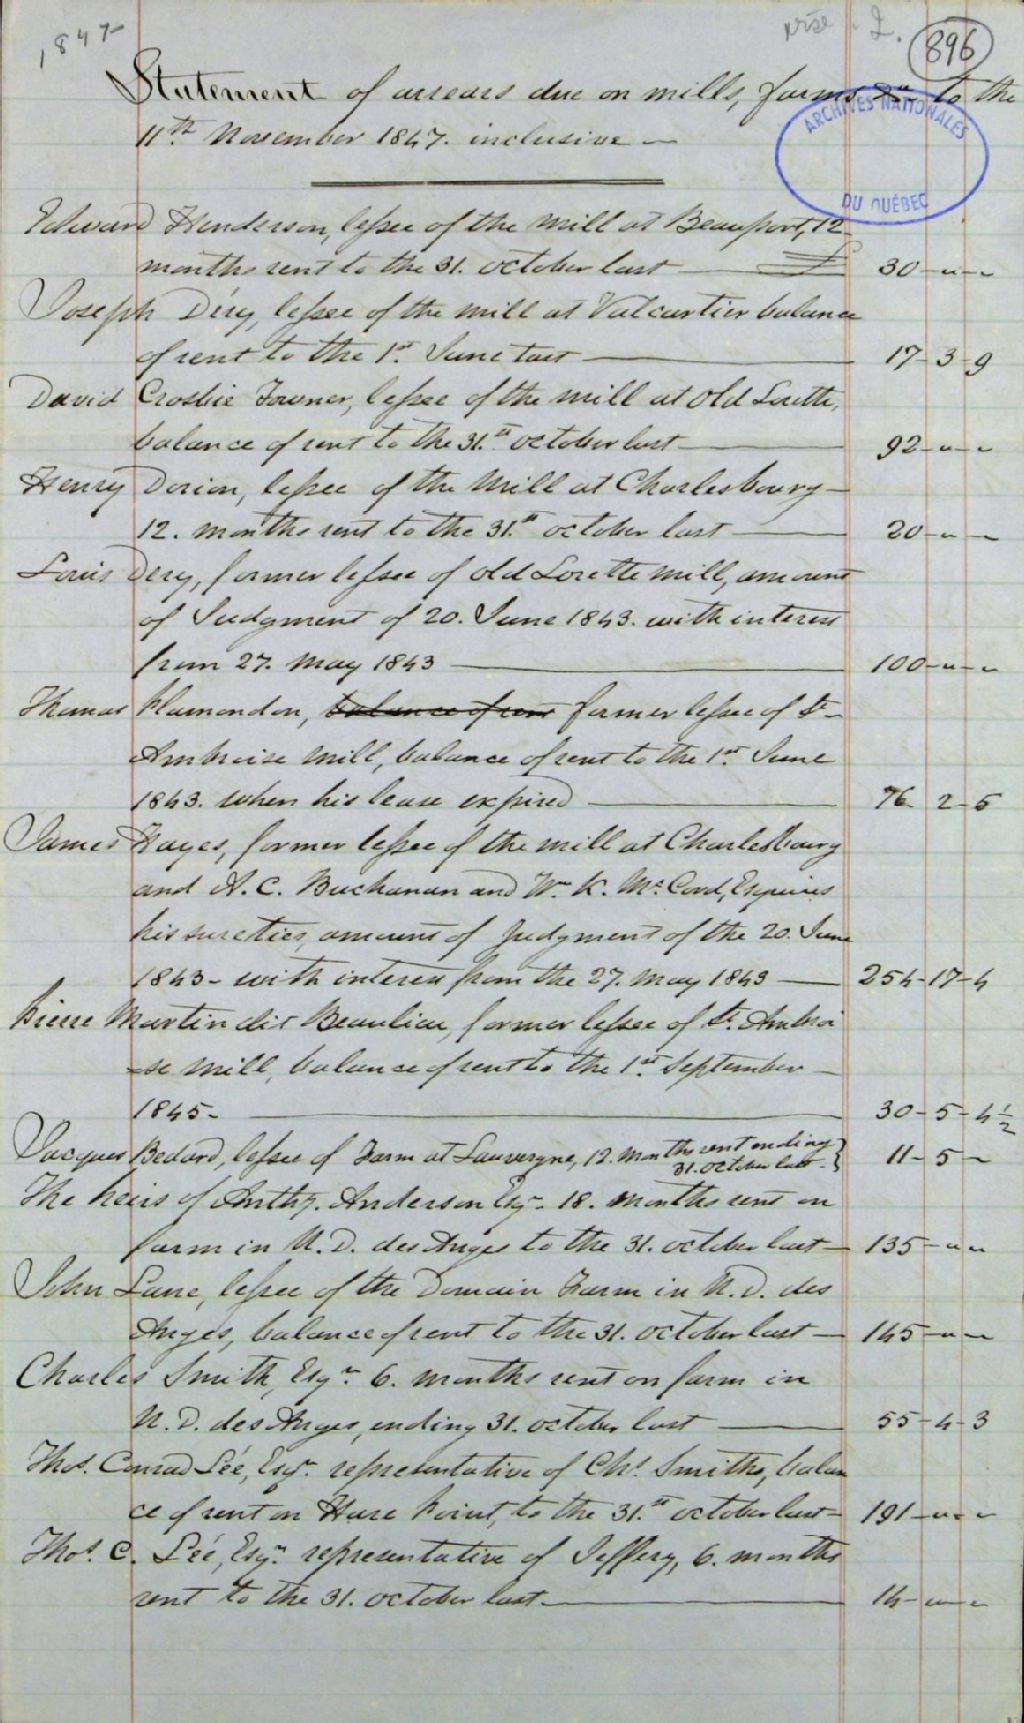 1847
896
Statement of arrears due on mills, farms &a to the
11th November 1847. inclusive —
ARCHIVES NATIONALES
DU QUÉBEC
Edward Henderson, lessee of the mill at Beauport, 12
months rent to the 31. October last — £ 30 - " - "
Joseph Déry, lessee of the mill at Valcartier balance
of rent to the 1st June last — 17 - 3 - 9
David Crosbie Towner, lessee of the mill at Old Lorette,
balance of rent to the 31.st October last — 92 - " - "
Henry Dorion, lessee of the Mill at Charlesbourg —
12. months rent to the 31.st October last — 20 - " - "
Louis Dery, former lessee of Old Lorette mill, amount
of Judgment of 20. June 1843. with interest
from 27. May 1843 — 100 - " - "
Thomas Plamondon, balance of rent former lessee of St
Ambroise mill, balance of rent to the 1st June
1843. when his lease expired — 76 - 2 - 5
James Hayes, former lessee of the mill at Charlesbourg
and A. C. Buchanan and Wm K. McCord, Esquires
his sureties, amount of Judgment of the 20. June
1843 - with interest from the 27. May 1843 — 254 - 17 - 4
Pierre Martin dit Beaulieu, former lessee of St. Ambroi
-se mill, balance of rent to the 1st September —
1845 - — 30 - 5 - 4 1/2
Jacques Bedard, lessee of Farm at Lauvergne, 12. months rent ending
31. October last - } 11 - 5 -
The heirs of Anthy. Anderson Esqr. 18. months rent on
farm in N. D. des Anges to the 31. October last — 135 - " "
John Lane, lessee of the Domain Farm in N. D. des
Anges, balance of rent to the 31. October last — 145 - " - "
Charles Smith, Esqr. 6. months rent on farm in
N. D. des Anges, ending 31. October last — 55 - 4 - 3
Thos. Conrad Lée, Esqr. representative of Chs. Smiths, balan
ce of rent on Hare Point, to the 31.st October last — 191 - " - "
Thos. C. Lée, Esqr. representative of Jeffery, 6. months
rent to the 31. October last. — 14 - " - "